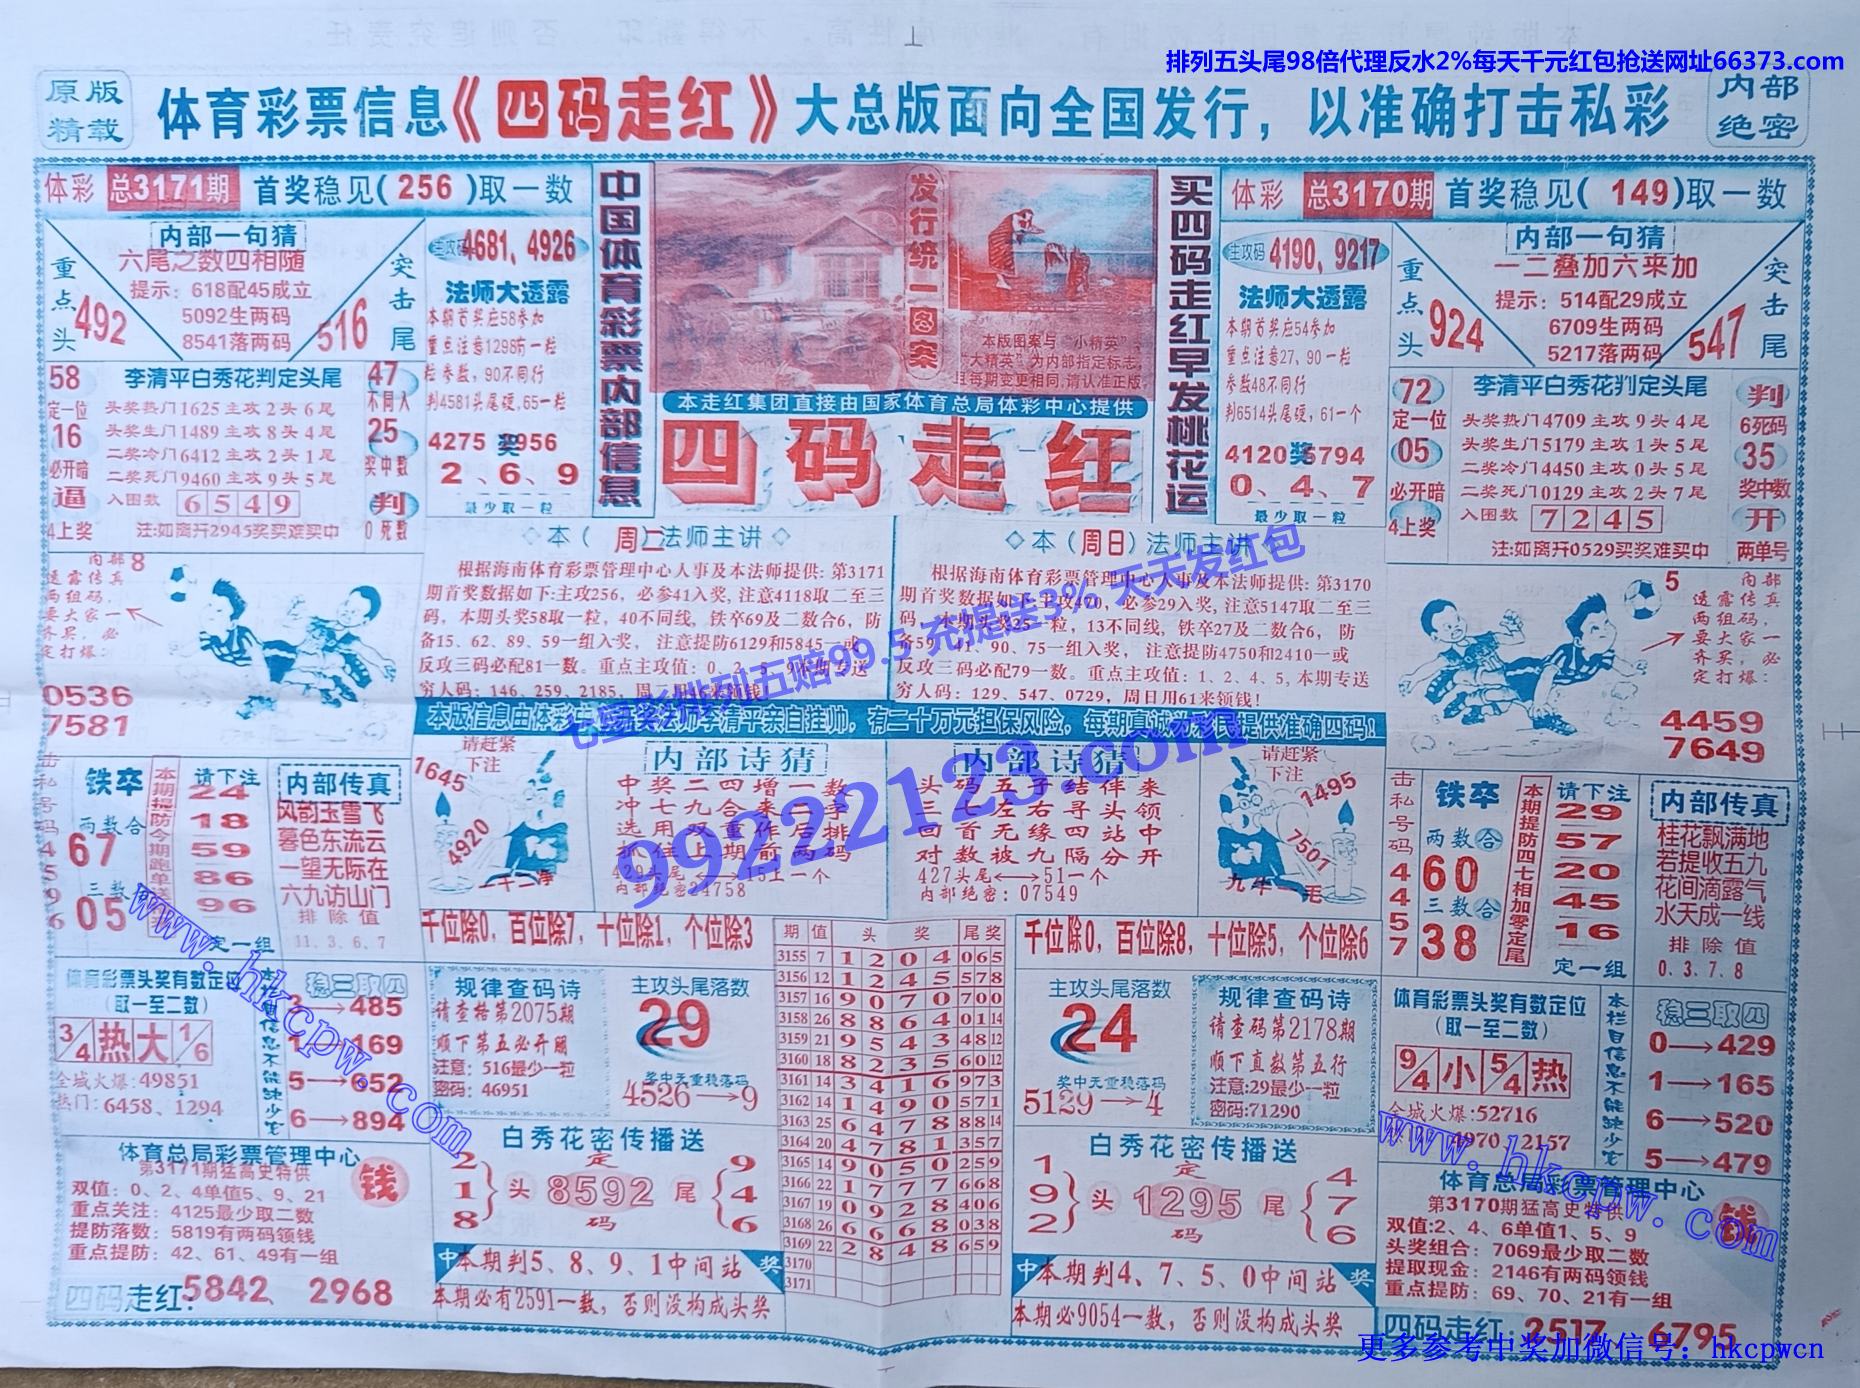 排列五头尾98倍代理反水2%每天千元红包抢送网址66373.com
原版
精载
体育彩票信息《四码走红》大总版面向全国发行，以准确打击私彩
内部
绝密
体彩 总3171期 首奖稳见(256)取一数
内部一句猜
六尾之数四相随
提示：618配45成立
5092生两码
8541落两码
重点头
492
突击尾
516
主攻码 4681, 4926
法师大透露
本期首奖应58参加
重点注意1298有一粒
粒参数, 90不同行
判4581头尾硬, 65一粒
4275 奖 956
2、6、9
最少取一粒
58
定一位
16
必开暗
逼
4上奖
李清平白秀花判定头尾
头奖热门1625主攻2头6尾
头奖生门1489主攻8头4尾
二奖冷门6412主攻2头1尾
二奖死门9460主攻9头5尾
入围数 6549
注:如离开2945奖买难买中
47
不同人
25
奖中数
判
0死数
中国体育彩票内部信息
发行统一图案
本版图案与“小精英”
“大精英”为内部指定标志,
且每期变更相同,请认准正版
本走红集团直接由国家体育总局体彩中心提供
四码走红
买四码走红早发桃花运
体彩 总3170期 首奖稳见(149)取一数
主攻码 4190, 9217
法师大透露
本期首奖应54参加
重点注意27, 90一粒
参数48不同行
判6514头尾硬, 61一个
4120 奖 5794
0、4、7
最少取一粒
内部一句猜
一二叠加六来加
提示：514配29成立
6709生两码
5217落两码
重点头
924
突击尾
547
72
定一位
05
必开暗
4上奖
李清平白秀花判定头尾
头奖热门4709主攻9头4尾
头奖生门5179主攻1头5尾
二奖冷门4450主攻0头5尾
二奖死门0129主攻2头7尾
入围数 7245
注:如离开0529买奖难买中
判
6死码
35
奖中数
开
两单号
内部8
透露传真
两组码,
要大家一
齐买, 必
定打爆:
0536
7581
◇本（周二）法师主讲◇
根据海南体育彩票管理中心人事及本法师提供: 第3171
期首奖数据如下:主攻256, 必参41入奖, 注意4118取二至三
码, 本期头奖58取一粒, 40不同线, 铁卒69及二数合6, 防
备15、62、89、59一组入奖, 注意提防6129和5845一或
反攻三码必配81一数。重点主攻值: 0、2、5、9本期专送
穷人码: 146、259、2185, 周二用16来领钱!
◇本（周日）法师主讲◇
根据海南体育彩票管理中心人事及本法师提供: 第3170
期首奖数据如下:主攻470, 必参29入奖, 注意5147取二至三
码, 本期头奖25一粒, 13不同线, 铁卒27及二数合6, 防
备59、41、90、75一组入奖, 注意提防4750和2410一或
反攻三码必配79一数。重点主攻值: 1、2、4、5, 本期专送
穷人码: 129、547、0729, 周日用61来领钱!
5
内部
透露传真
两组码,
要大家一
齐买, 必
定打爆:
4459
7649
七星彩排列五赔99.5 充提送3% 天天发红包
99222123.com
击私号码45996
铁卒
两数合
67
三数
05
请下注
24
18
59
86
96
定一组
内部传真
风韵玉雪飞
暮色东流云
一望无际在
六九访山门
排除值
11、3、6、7
请赶紧
下注
1645
4920
一干二净
内部诗猜
中奖二四增一数
冲七九合来二字
选用双重作后排
抓住上期前两码
429头尾⟷15上一个
内部绝密24758
内部诗猜
头码五子结伴来
三七左右寻头领
回首无缘四站中
对数被九隔分开
427头尾⟷51一个
内部绝密: 07549
请赶紧
下注
1495
7501
九牛一毛
击私号码44457
铁卒
两数合
60
三数合
38
本期提防四七相加零定尾
请下注
29
57
20
45
16
定一组
内部传真
桂花飘满地
若提收五九
花间滴露气
水天成一线
排除值
0、3、7、8
千位除0, 百位除7, 十位除1, 个位除3
千位除0, 百位除8, 十位除5, 个位除6
体育彩票头奖有数定位
(取一至二数)
3/4 热 大 1/6
全城火爆: 49851
热门: 6458、1294
稳三取四
3→485
1→169
5→652
6→894
规律查码诗
请查格第2075期
顺下第五必开丽
注意: 516最少一粒
密码: 46951
主攻头尾落数
29
奖中无重稳落码
4526→9
期 值 头 奖 尾奖
3155 7 1 2 0 4 065
3156 12 1 2 4 5 578
3157 16 9 0 7 0 700
3158 26 8 8 6 4 014
3159 21 9 5 4 3 4812
3160 18 8 2 3 5 6012
3161 14 3 4 1 6 973
3162 14 1 4 9 0 571
3163 25 6 4 7 8 8814
3164 20 4 7 8 1 357
3165 14 9 0 5 0 259
3166 22 1 7 7 7 668
3167 19 0 9 2 8 406
3168 26 6 6 6 8 038
3169 22 2 8 4 8 659
3170
3171
主攻头尾落数
24
奖中无重稳落码
5129→4
规律查码诗
请查码第2178期
顺下直数第五行
注意:29最少一粒
密码:71290
体育彩票头奖有数定位
(取一至二数)
9/4 小 5/4 热
全城火爆:52716
4970 2157
本栏目信息不能缺少它
稳三取四
0→429
1→165
6→520
5→479
体育总局彩票管理中心
第3171期猛高史特供
钱
双值: 0、2、4单值5、9、21
重点关注: 4125最少取二数
提防落数: 5819有两码领钱
重点提防: 42、61、49有一组
四码走红: 5842、2968
白秀花密传播送
2
1
8
头 定 8592 码 尾
9
4
6
中 本期判5、8、9、1中间站 奖
本期必有2591一数, 否则没构成头奖
白秀花密传播送
1
9
2
头 定 1295 码 尾
4
7
6
中 本期判4、7、5、0中间站 奖
本期必9054一数, 否则没构成头奖
体育总局彩票管理中心
第3170期猛高史特供
双值:2、4、6单值1、5、9
头奖组合: 7069最少取二数
提取现金: 2146有两码领钱
重点提防: 69、70、21有一组
四码走红: 2517 6795
www.hkcpw.com
www.hkcpw.com
更多参考中奖加微信号：hkcpwcn